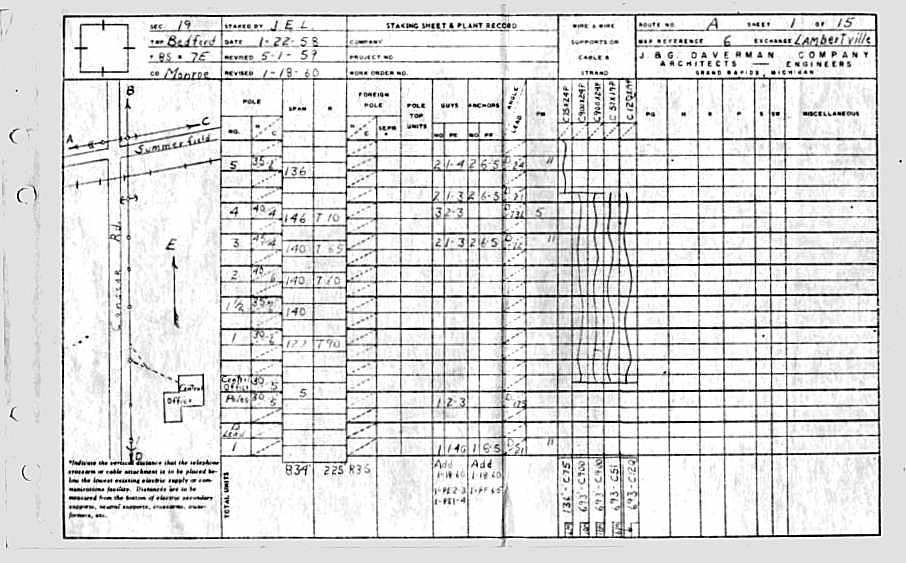 SEC. 19
TWP Bedford
T 8S R 7E
CO Monroe
STAKED BY J E L
DATE 1-22-58
REVISED 5-1-59
REVISED 1-18-60
STAKING SHEET & PLANT RECORD
COMPANY
PROJECT NO.
WORK ORDER NO.
WIRE & WIRE
SUPPORTS OR
CABLE &
STRAND
ROUTE NO. A SHEET 1 OF 15
MAP REFERENCE 6 EXCHANGE Lambertville
J. & G. DAVERMAN COMPANY
ARCHITECTS — ENGINEERS
GRAND RAPIDS, MICHIGAN
POLE
NO.
H C
SPAN
R
FOREIGN
POLE
H C
SEPN *
POLE
TOP
UNITS
GUYS
NO. PE
ANCHORS
NO. PF
ANGLE
LEAD
PM
PG
M
R
P
S
SW
MISCELLANEOUS
B
A
C
Summerfield
Rd.
E
Central
Office
D
5 35-6
136
2 1-4 2 6-5 11
2 1-3 2 6-5
4 40-4
3 2-3 5
146 T 10
3
2 1-3 2 6-5 11
140 T 65
2 40-6
140 T 60
1 1/2
140
1 30-6
T 90
Central
Office
Poles
30 5
30 5
5
1 2-3
D
Lead
1
1 8-5 11
TOTAL UNITS
834 225 R3S
Add Add
1-18-60 1-18-60
1-PE2-3
1-PE1-4
136 - C75
693 - C900
693 - C900
693 - C51
693 - C120
*Indicate the vertical distance that the telephone
crossarm or cable attachment is to be placed be-
low the lowest existing electric supply or com-
munications facility. Distances are to be
measured from the bottom of electric secondary
supports, neutral supports, crossarms, trans-
formers, etc.